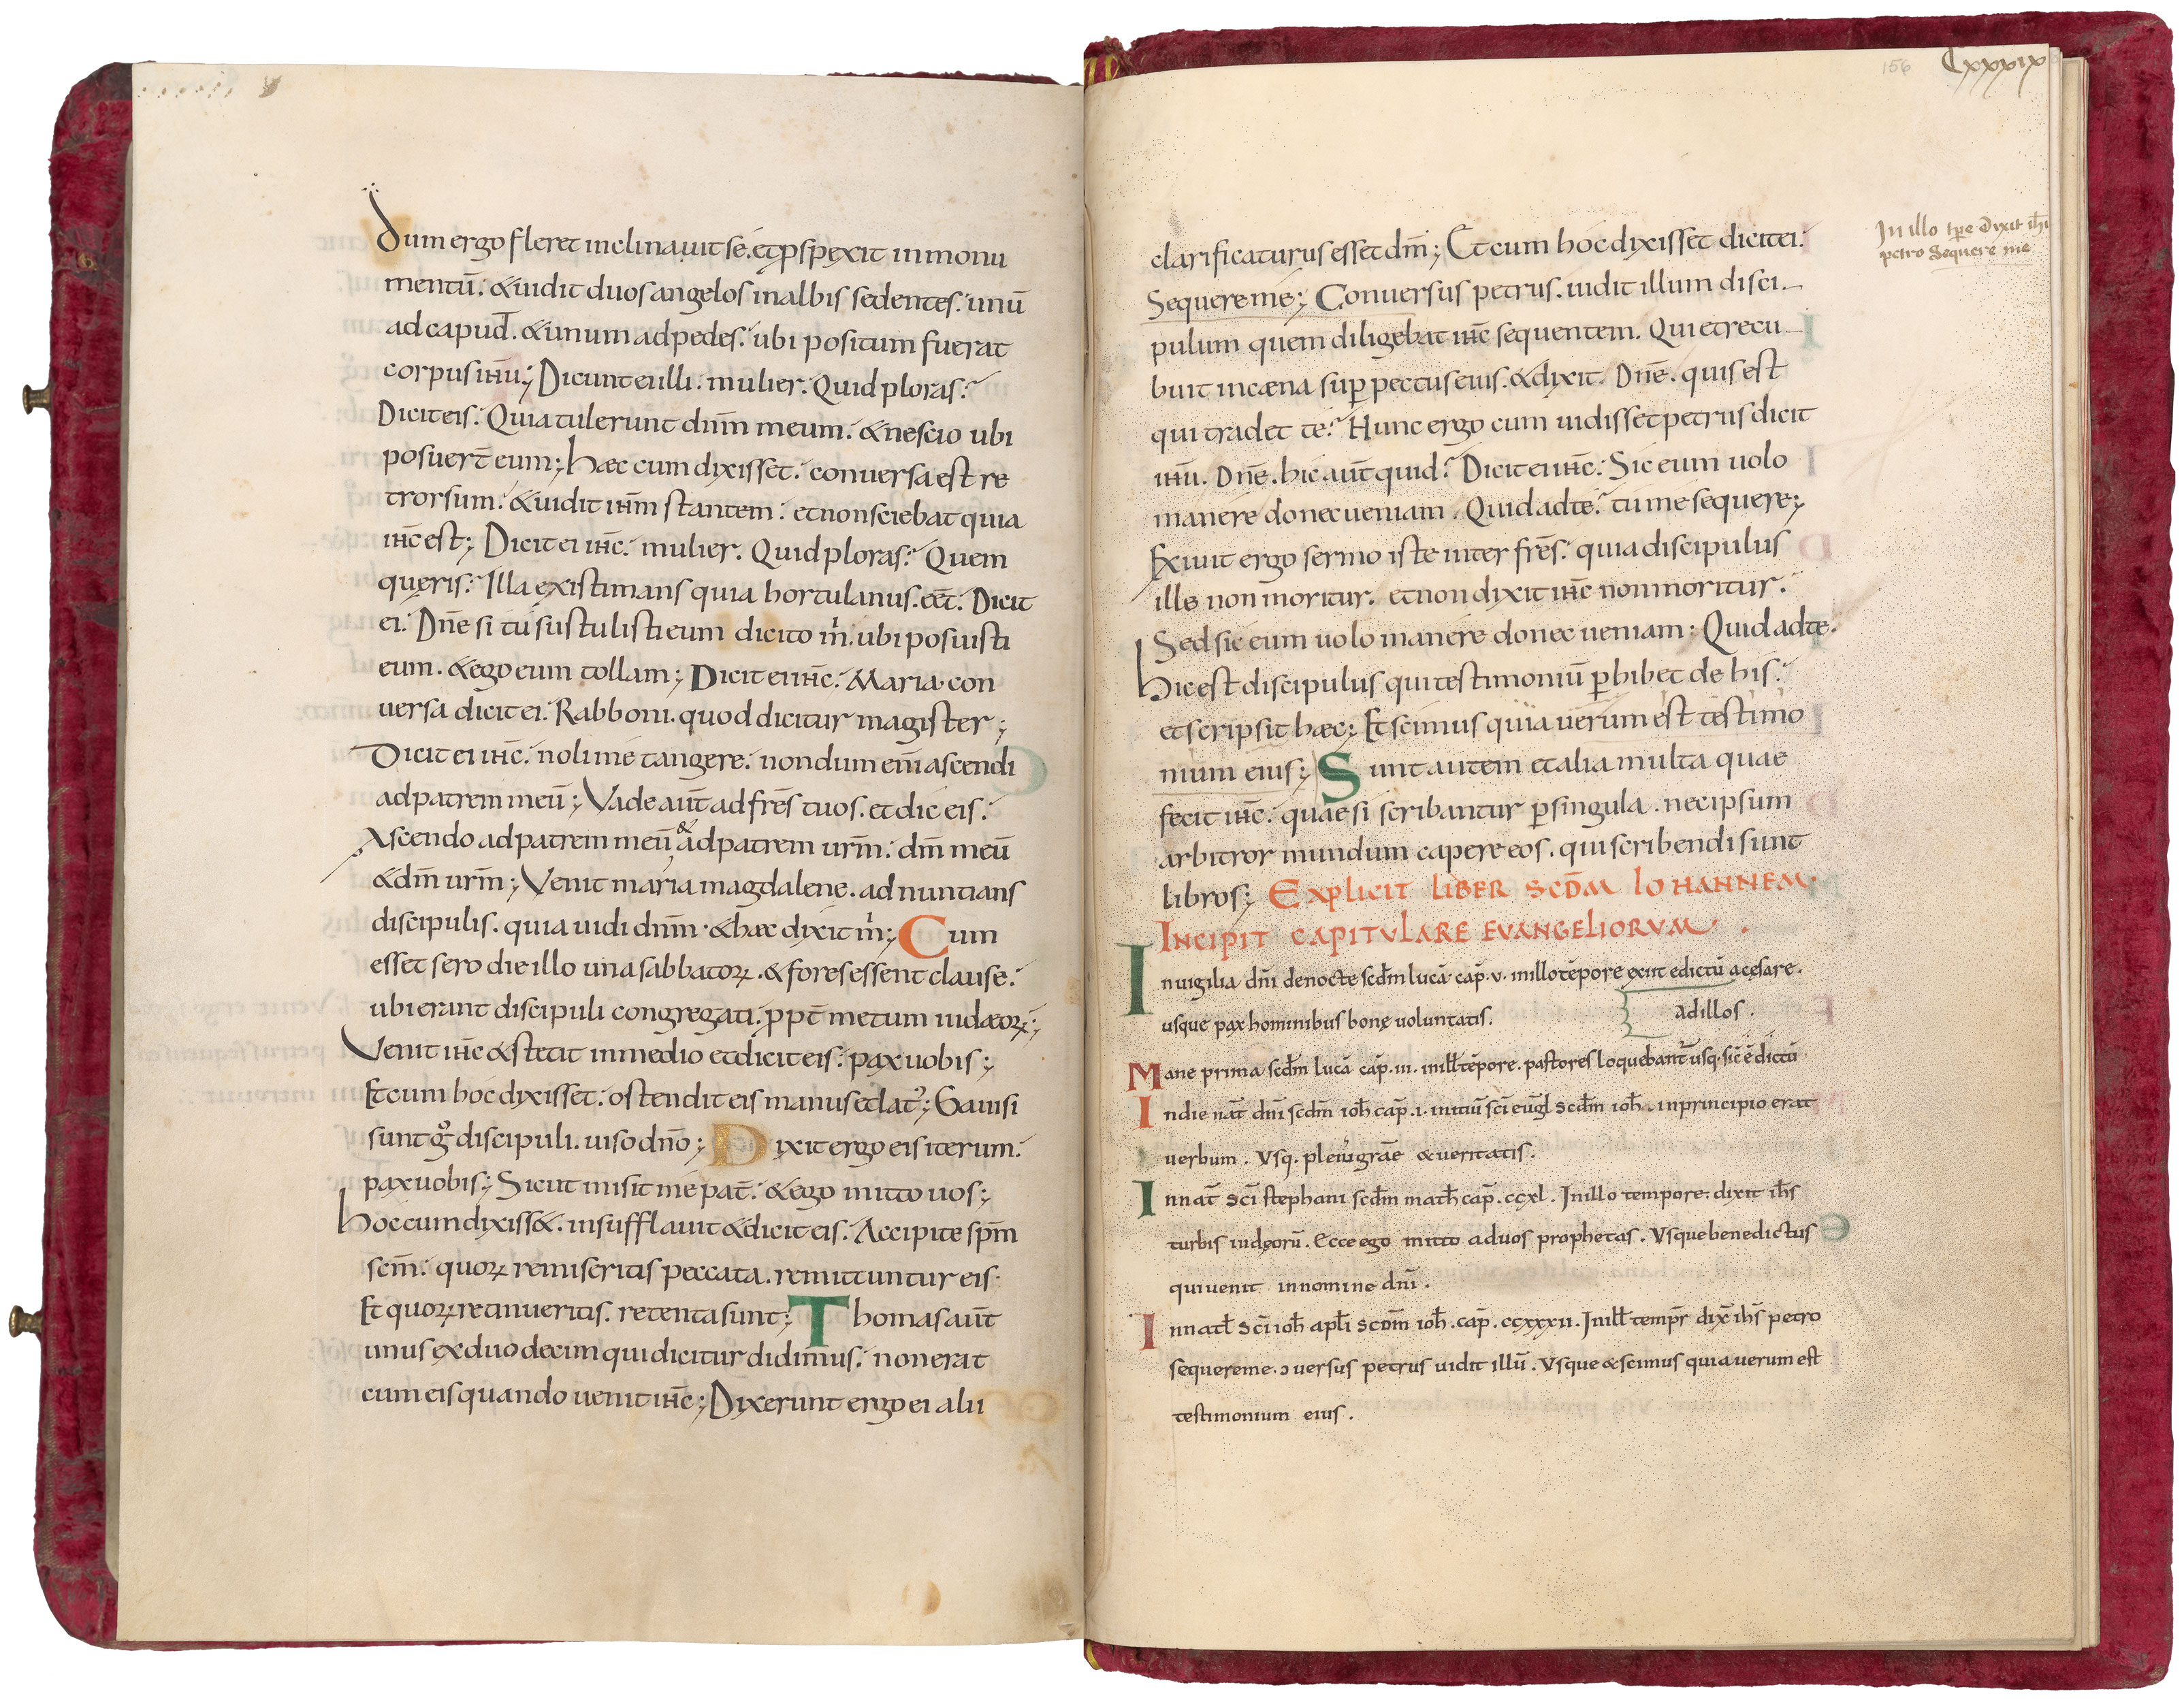 dum ergo fleret inclinauit se. et p̄spexit in monu
mentū. & uidit duos angelos in albis sedentes. unū
ad capud. & unum ad pedes. ubi positum fuerat
corpus ih̄u; Dicunt ei illi. mulier. Quid ploras?
Dicit eis. Quia tulerunt dn̄m meum. & nescio ubi
posuert̄ eum; haec cum dixisset. conuersa est re
trorsum. & uidit ih̄m stantem. et non sciebat quia
ih̄c est; Dicit ei ih̄c. mulier. Quid ploras? Quem
queris? Illa existimans quia hortulanus. eēt. Dicit
ei. Dn̄e si tu sustulisti eum dicito m̄. ubi posuisti
eum. & ego eum tollam; Dicit ei ih̄c. Maria. con
uersa dicit ei. Rabboni. quod dicitur magister;
Dicit ei ih̄c. noli me tangere. nondum eni̅ ascendi
ad patrem meū; Vade aūt ad fr̄es tuos. et dic eis.
Ascendo ad patrem meū & ad patrem ur̄m. dm̄ meū
& dm̄ ur̄m; Venit maria magdalene. adnuntians
discipulis. quia uidi dn̄m. & haec dixit m̄; Cum
esset sero die illo una sabbatoꝝ. & fores essent clause.
ubi erant discipuli congregati. ppt̄ metum iudaeoꝝ;
Venit ih̄c & stetit in medio et dicit eis. pax uobis;
Et cum hoc dixisset. ostendit eis manus et lat᾽; Gauisi
sunt gͦ discipuli. uiso dn̄o; Dixit ergo eis iterum.
pax uobis; Sicut misit me pat̄. & ego mitto uos;
hoc cum dixiss&. insufflauit & dicit eis. Accipite sp̄m
sc̄m. quoꝝ remiseritis peccata. remittuntur eis.
Et quoꝝ retinueritis. retenta sunt; Thomas aūt
unus ex duodecim qui dicitur didimus. non erat
cum eis quando uenit ih̄c; Dixerunt ergo ei alii
156 Cxxxix
In illo tp̄e Dixit ih̄s
petro Sequere me
clarificaturus esset dm̄; Et cum hoc dixisset dicit ei.
Sequere me; Conuersus petrus. uidit illum disci
pulum quem diligebat ih̄c sequentem. Qui et recu
buit in caena sup̄ pectus eius. & dixit. Dn̄e. quis est
qui tradet te? Hunc ergo cum uidisset petrus dicit
ih̄u. Dn̄e. hic aūt quid? Dicit ei ih̄c. Sic eum uolo
manere donec ueniam. Quid ad te? tu me sequere;
Exiuit ergo sermo iste inter fr̄es. quia discipulus
ille non moritur. et non dixit ih̄c non moritur.
Sed sic eum uolo manere donec ueniam. Quid ad te.
hic est discipulus qui testimoniū p̄hibet de his.
et scripsit haec; Et scimus quia uerum est testimo
nium eius; Sunt autem et alia multa quae
fecit ih̄c. quae si scribantur p̄ singula. nec ipsum
arbitror mundum capere eos. qui scribendi sunt
libros; Explicit liber scdm̄ Iohannem.
Incipit capitulare euangeliorum.
In uigilia dn̄i de nocte scdm̄ lucā cap̄. v. in illo tēpore exiit edictū a cesare.
usque pax hominibus bonę uoluntatis. ad illos.
Mane prima scdm̄ lucā cap̄. iii. in ill̄ tēpore. pastores loquebant᾽ usq. sic̄ ē dictū
In die nat̄ dn̄i scdm̄ ioh̄ cap̄. i. initiū sc̄i eūgl scdm̄ ioh̄. in principio erat
uerbum. Vsq. plenū grāe & ueritatis.
In nat̄ sc̄i stephani scdm̄ math̄ cap̄. ccxl. In illo tempore. dixit ih̄s
turbis iudęorū. Ecce ego mitto ad uos prophetas. Vsque benedictus
qui uenit in nomine dn̄i.
In natl̄ sc̄i ioh̄ apl̄i scdm̄ ioh̄. cap̄. ccxxxii. In ill̄ tempr̄ dix̄ ih̄s petro
sequere me. ɔuersus petrus uidit illū. Vsque & scimus quia uerum est
testimonium eius.